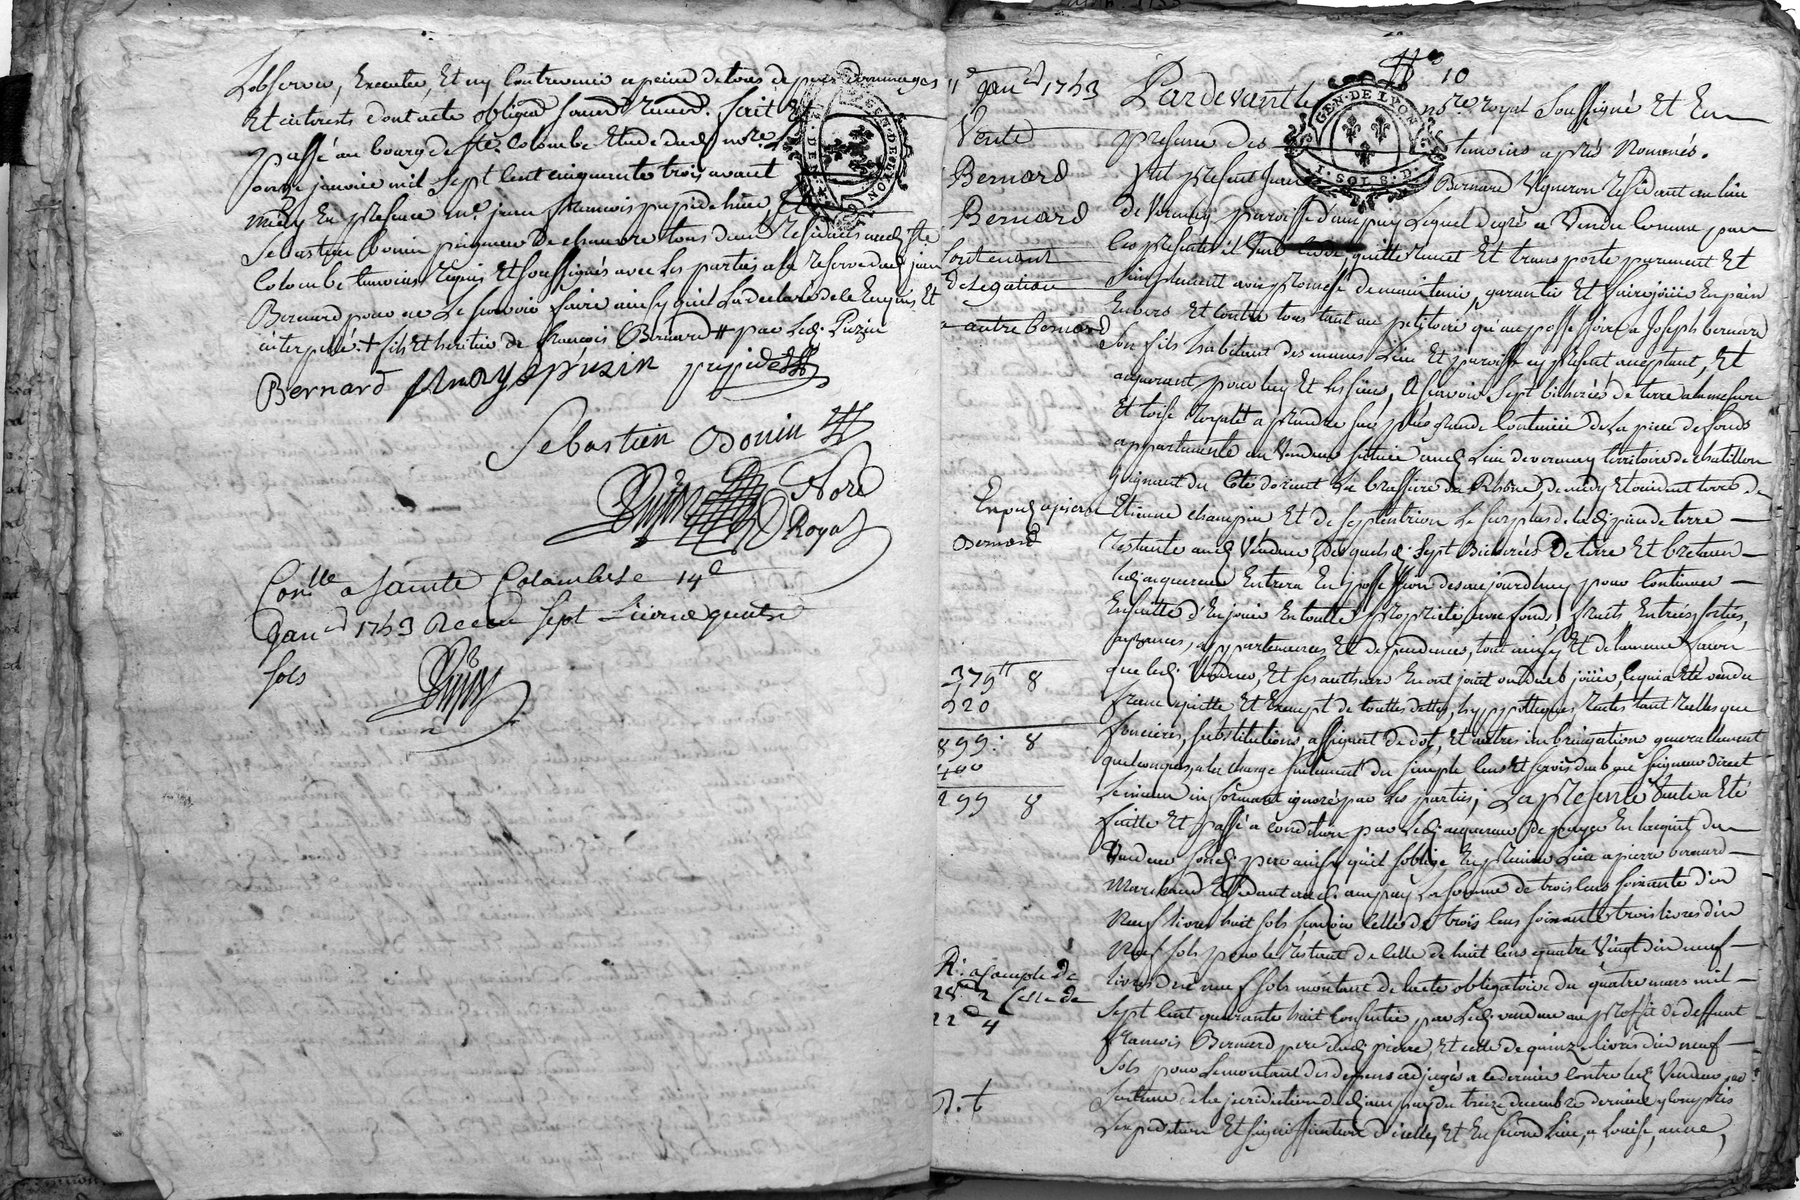 Lobserver, Executer, Et ny Contrevenir a peine de tous depens dommages
Et interests dont acte obligean soumett. renonc. fait Et
passé au bourg de Ste. Colombe Etude dud. nore.
onze janvier mil Sept Cent cinquante trois avant
midy En presence de me. jean francois
Sebastien Odouin peigneur de chanvre tous deux Residants aud. Ste
Colombe temoins requis Et soussignés avec les parties a la reserve dud. jean
Bernard pour ne le scavoir faire ainsy qu'il La declaré de ce Enquis Et
interpellé. + fils Et heritier de francois Bernard # par led. Puzin
Bernard puzin
Sebastien Odouin
Nore
Royal
Conllé a Sainte Colombe le 14e
Janer 1753 Receu Sept Livres quatre
sols
No 10
11e Janer 1753
Vente
Bernard
Bernard
Contenant
delegation
a autre Bernard
GEN. DE LYON
1. SOL 8. D.
Pardevant le nre. royal Soussigné Et En
presence des temoins après Nommés.
fut present Bernard Vigneron residant au lieu
de Verenay paroisse d'ampuy Lequel de gré a Vendu Comme par
Ces presentes il Vend quitte remet Et transporte purement Et
Simplement avec promesse de maintenir, garantir Et faire jouir En paix
Envers Et Contre tous tant au petitoire qu'au possessoire a Joseph bernard
Son fils habitant des memes Lieu Et paroisse cy present acceptant, Et
acquerant pour luy Et les siens, A scavoir Sept bicherées de terre a la mesure
Et toise royalle a prendre sur plus grande Contenüe de la piece de fonds
appartenante au Vendeur scituée aud. Lieu de verenay territoire de chatillon
joignant du Coté dorient La brassiere du Rhône, de midy Et occident terre de
Etienne champin Et de septentrion Le surplus de lad. piece de terre
restante aud. Vendeur, desquelles Sept Bicherées De terre
led. acquereur Entrera En possession des aujourdhuy pour Continuer
Ensuitte d'En jouir En toutte proprieté, avec fonds, fruits, Entrées, sorties,
aizances, appartenances Et dependances, tout ainsy Et de la meme facon
que led. Vendeur, Et ses autheurs En ont jouit ou deub joüir, Ce qui a Eté vendu
franc quitte Et Exempt de touttes dettes, hyppotheques
foncieres, substitutions, assignat de dot, Et autres imbrigations generallement
quelconques, a la charge seulement du simple Cens Et servis deub au seigneur direct
ignoré par les parties; La presente Vente a Eté
faitte Et passée a condition par Led. acquereur de payer En lacquit du
Vendeur son d. pere ainsy qu'il soblige En premier Lieu a pierre bernard
Marchand Residant aud. ampuy La somme de trois Cens soixante dix
Neuf livres huit sols scavoir Celle de trois Cens soixante trois livres dix
Neuf sols pour le restant de Celle de huit Cens quatre Vingt dix neuf
livres dix neuf sols montant de lacte obligatoire du quatre mars mil
Sept Cent quarante huit Consentie par led. vendeur au proffit de deffunt
francois Bernard pere dud. pierre, Et celle de quinze livres dix neuf
Sols pour Le montant des depens adjugés a ce dernier Contre led. Vendeur par
Sentence de la juridiction dud. ampuy du treize decembre dernier y Compris
Lexpedition Et signiffication d'icelle, Et En second Lieu, a Louise, anne,
Bernard
379tt 8
520
899: 8
400
299 8
R. a Compte de